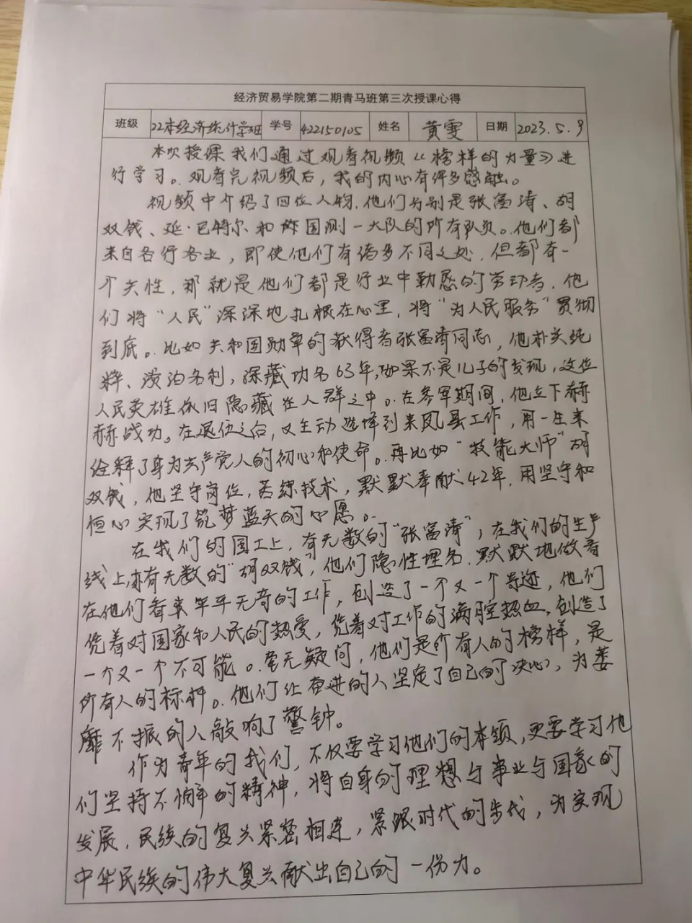 经济贸易学院第二期青马班第三次授课心得
班级 22本经济统计学班 学号 422150105 姓名 黄雯 日期 2023.5.9
本次授课我们通过观看视频《榜样的力量》进
行学习。观看完视频后，我的内心有许多感触。
视频中介绍了四位人物，他们分别是张富清、胡
双钱、延·巴特尔和称国测一大队的所有队员。他们都
来自各行各业，即使他们有诸多不同之处，但都有一
个共性，那就是他们都是行业中勤恳的劳动者，他
们将“人民”深深地扎根在心里，将“为人民服务”贯彻
到底。比如共和国勋章的获得者张富清同志，他朴实纯
粹、淡泊名利，深藏功名63年，如果不是儿子的发现，这位
人民英雄依旧隐藏在人群之中。在参军期间，他立下赫
赫战功。在退伍之后，又主动选择到来凤县工作，用一生来
诠释了身为共产党人的初心和使命。再比如“技能大师”胡
双钱，他坚守岗位，苦练技术，默默奉献42年，用坚守和
恒心实现了筑梦蓝天的心愿。
在我们的国土上，有无数的“张富清”，在我们的生产
线上，亦有无数的“胡双钱”，他们隐性埋名，默默地做着
在他们看来平平无奇的工作，创造了一个又一个奇迹，他们
凭着对国家和人民的热爱，凭着对工作的满腔热血，创造了
一个又一个不可能。毫无疑问，他们是所有人的榜样，是
所有人的标杆。他们让奋进的人坚定了自己的决心，为萎
靡不振的人敲响了警钟。
作为青年的我们，不仅要学习他们的本领，更要学习他
们坚持不懈的精神，将自身的理想与事业与国家的
发展，民族的复兴紧密相连，紧跟时代的步伐，为实现
中华民族的伟大复兴献出自己的一份力。